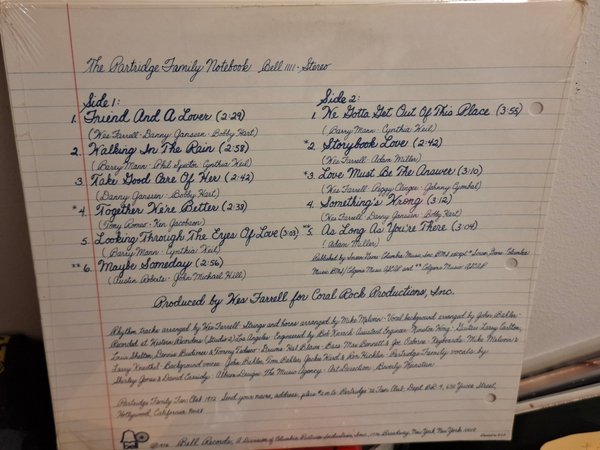 The Partridge Family Notebook Bell 1111 · Stereo
Side 1:
1. Friend And A Lover (2:29)
(Wes Farrell · Danny Janssen · Bobby Hart)
2. Walking In The Rain (2:58)
(Barry Mann · Phil Spector · Cynthia Weil)
3. Take Good Care Of Her (2:42)
(Danny Janssen · Bobby Hart)
*4. Together We're Better (2:38)
(Tony Romeo · Ken Jacobson)
5. Looking Through The Eyes Of Love (3:03)
(Barry Mann · Cynthia Weil)
**6. Maybe Someday (2:56)
(Austin Roberts · John Michael Hill)
Side 2:
1. We Gotta Get Out Of This Place (3:55)
(Barry Mann · Cynthia Weil)
*2. Storybook Love (2:42)
(Wes Farrell · Adam Miller)
*3. Love Must Be The Answer (3:10)
(Wes Farrell · Peggy Clinger · Johnny Cymbal)
4. Something's Wrong (3:12)
(Wes Farrell · Danny Janssen · Bobby Hart)
5. As Long As You're There (3:04)
(Adam Miller)
Published by Screen Gems-Columbia Music, Inc. BMI except * Screen Gems-Columbia
Music BMI/Colgems Music ASCAP and ** Colgems Music ASCAP
Produced by Wes Farrell for Coral Rock Productions, Inc.
Rhythm tracks arranged by Wes Farrell · Strings and horns arranged by Mike Melvoin · Vocal background arranged by John Bahler ·
Recorded at Western Recorders (Studio 2) Los Angeles · Engineered by Bob Kovach · Assistant Engineer · Winston Wong · Guitars: Larry Carlton,
Louis Shelton, Dennis Budimir & Tommy Tedesco · Drums: Hal Blaine · Bass: Max Bennett & Joe Osborn · Keyboards: Mike Melvoin &
Larry Knechtel · Background voices: John Bahler, Tom Bahler, Jackie Ward & Ron Hicklin · Partridge Family vocals by:
Shirley Jones & David Cassidy · Album Design: The Music Agency · Art Direction: Beverly Weinstein
Partridge Family Fan Club 1972 Send your name, address, plus $2.00 to: Partridge '72 Fan Club · Dept. BR-4, Yucca Street,
Hollywood, California
©1972 Bell Records, A Division of Columbia Pictures Industries, Inc., 1776 Broadway, New York, New York 10019
Printed in U.S.A.